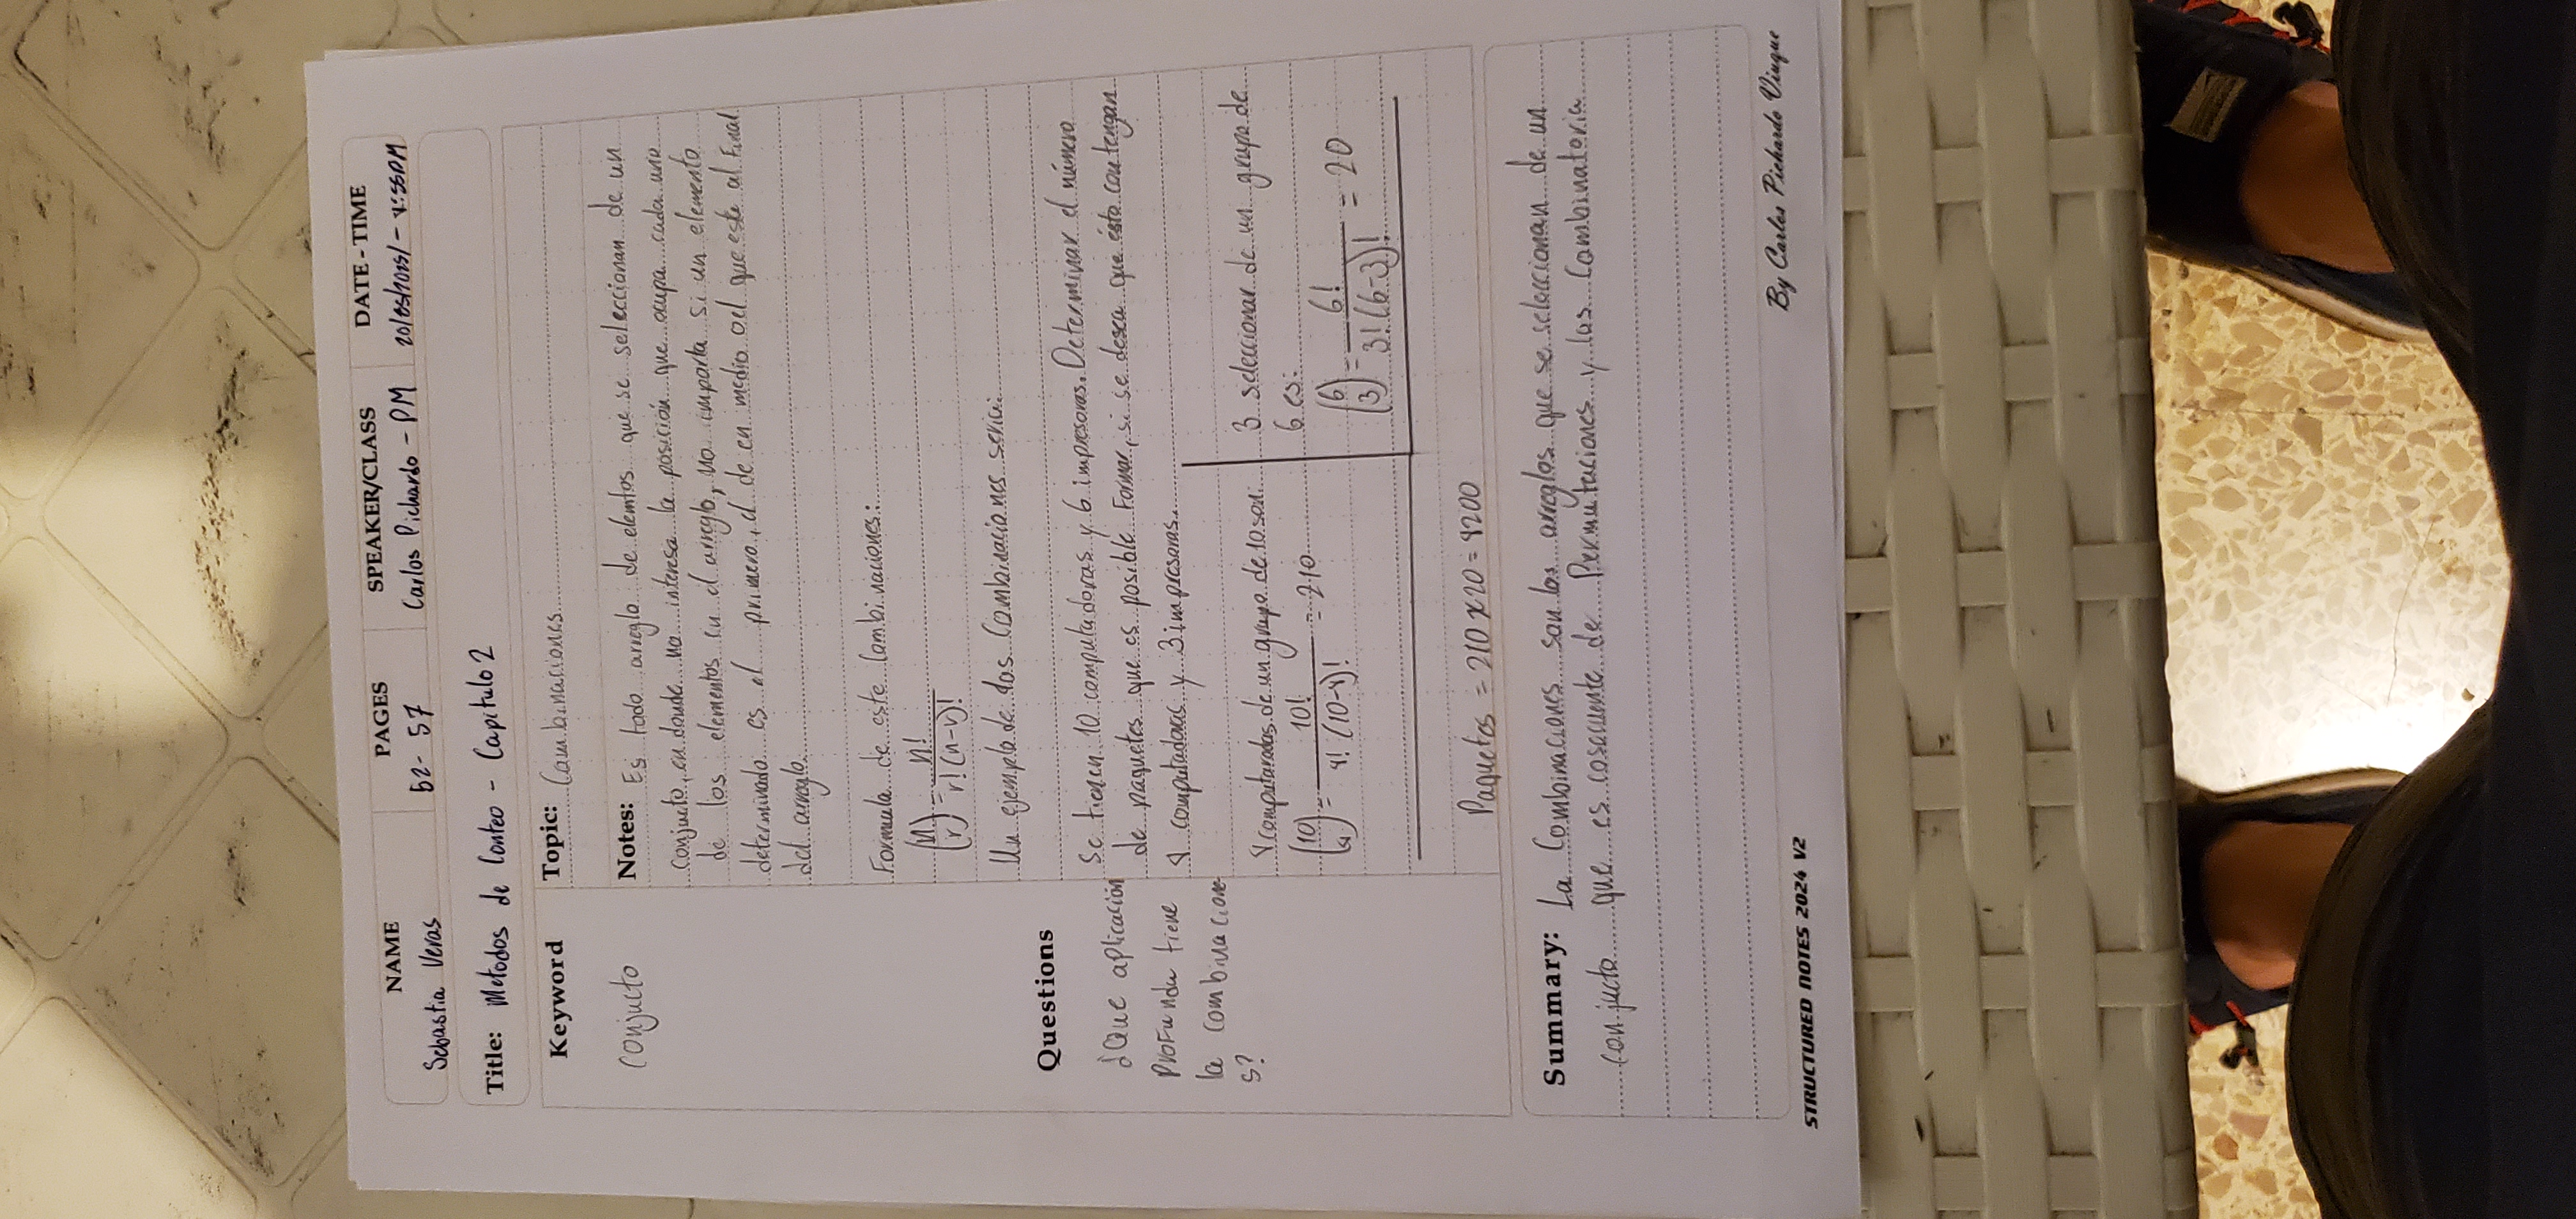 NAME
PAGES
SPEAKER/CLASS
DATE-TIME
Sebastia Veras
52- 57
Carlos Pichardo - PM
20/05/2025/ - 4:55PM
Title: Metodos de Conteo - Capitulo 2
Keyword
Conjucto
Topic: Combinaciones
Notes: Es todo arreglo de elemtos que se seleccionan de un
conjucto, en donde no interesa la posición que ocupa cada uno
de los elementos en el arreglo, no importa si un elemento
determinado es el primero, el de en medio o el que este al Final
del arreglo.
Formula de este Combinaciones:
(n r) = n! / r!(n-r)!
Un ejemplo de las Combinaciones seria:
Questions
¿Que aplicación
ProFunda tiene
la combinacione-
s?
Se tienen 10 computadoras y 6 impresoras. Determinar el número
de paquetes que es posible Formar, si se desea que ésto contengan
4 computadoras y 3 impresoras.
4 computarodas de un grupo de 10 son:
(10 4) = 10! / 4!(10-4)! = 210
3 seleccionar de un grupo de
6 es:
(6 3) = 6! / 3!(6-3)! = 20
Paquetes = 210 x 20 = 4200
Summary: La Combinaciones son los arreglos que se seleccionan de un
conjucto que es cosecuente de Permutaciones y las Combinatoria
STRUCTURED NOTES 2024 V2
By Carlos Pichardo Viuque